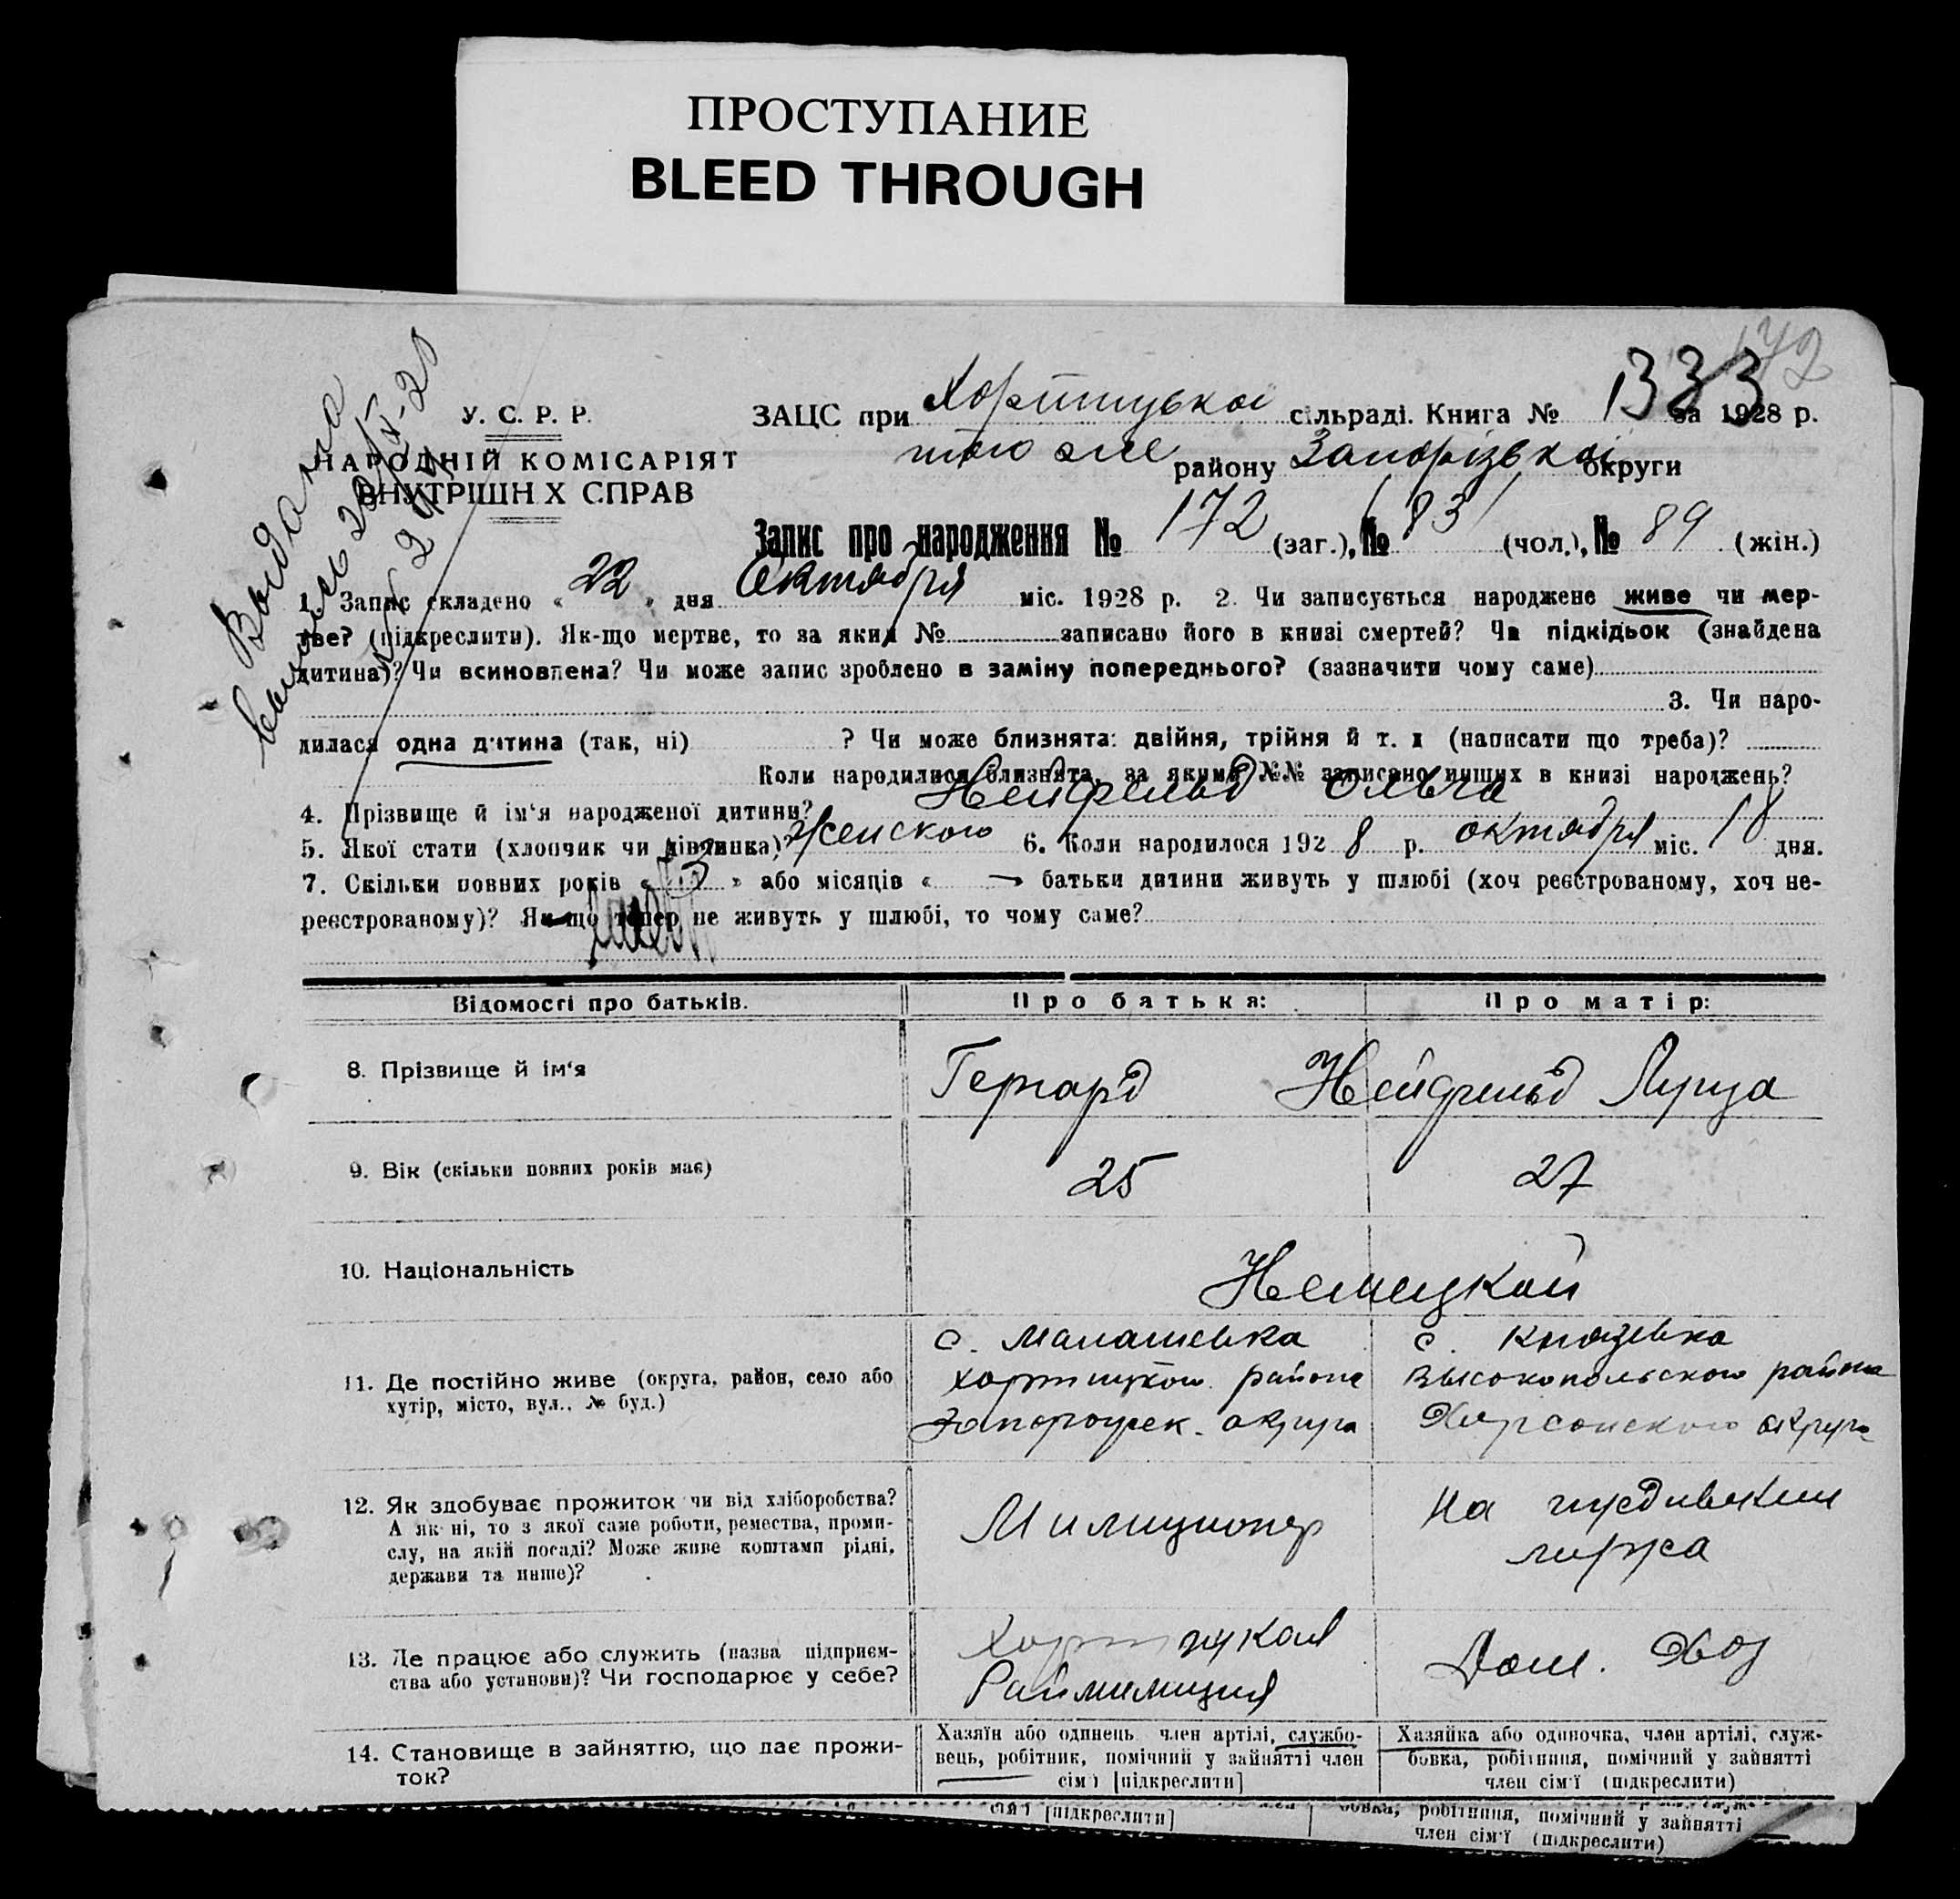 ПРОСТУПАНИЕ
BLEED THROUGH
172
Выдана
У. С. Р. Р.
НАРОДНІЙ КОМІСАРІЯТ
ВНУТРІШН Х СПРАВ
ЗАЦС при Хортицькой сільраді. Книга № 133 за 1928 р.
того же району Запорізької округи
Запис про народження № 172 (заг.), № 83 (чол.), № 89 (жін.)
1. Запис складено « 22 » дня Октября міс. 1928 р. 2. Чи записується народжене живе чи мер-
тве? (підкреслити). Як-що мертве, то за яким № записано його в книзі смертей? Чи підкідьок (знайдена
дитина)? Чи всиновлена? Чи може запис зроблено в заміну попереднього? (зазначити чому саме)
3. Чи наро-
дилася одна дитина (так, ні) ? Чи може близнята: двійня, трійня й т. д (написати що треба)?
Коли народилися близнята, за якими №№ записано инших в книзі народжень?
4. Прізвище й ім'я народженої дитини? Нейфельд Ольга
5. Якої стати (хлопчик чи дівчинка)? Женского 6. Коли народилося 1928 р. октября міс. 18 дня.
7. Скільки повних років « » або місяців « — » батьки дитини живуть у шлюбі (хоч реєстрованому, хоч не-
реєстрованому)? Як-що тепер не живуть у шлюбі, то чому саме?
Відомості про батьків. Про батька: Про матір:
8. Прізвище й ім'я Гергард Нейфельд Луиза
9. Вік (скільки повних років має) 25 27
10. Національність Немецкой
11. Де постійно живе (округа, район, село або
хутір, місто, вул., № буд.)
с. Малашевка
Хортицкого района
Запорожск. округа
с. Князевка
Высокопольского района
Херсонского округа
12. Як здобуває прожиток чи від хліборобства?
А як ні, то з якої саме роботи, ремества, проми-
слу, на якій посаді? Може живе коштами рідні,
держави та инше)?
Милиционер
На иждивении
мужа
13. Де працює або служить (назва підприєм-
ства або установи)? Чи господарює у себе?
Хортицкая
Раймилиция
Дом. Хоз
14. Становище в зайняттю, що дає прожи-
ток?
Хазяїн або одинець член артілі, службо-
вець, робітник, помічний у зайнятті член
сім'ї [підкреслити]
Хазяйка або одиночка, член артілі, служ-
бовка, робітниця, помічний у зайнятті
член сім'ї (підкреслити)
сім'ї [підкреслити]
бовка, робітниця, помічний у зайнятті
член сім'ї (підкреслити)